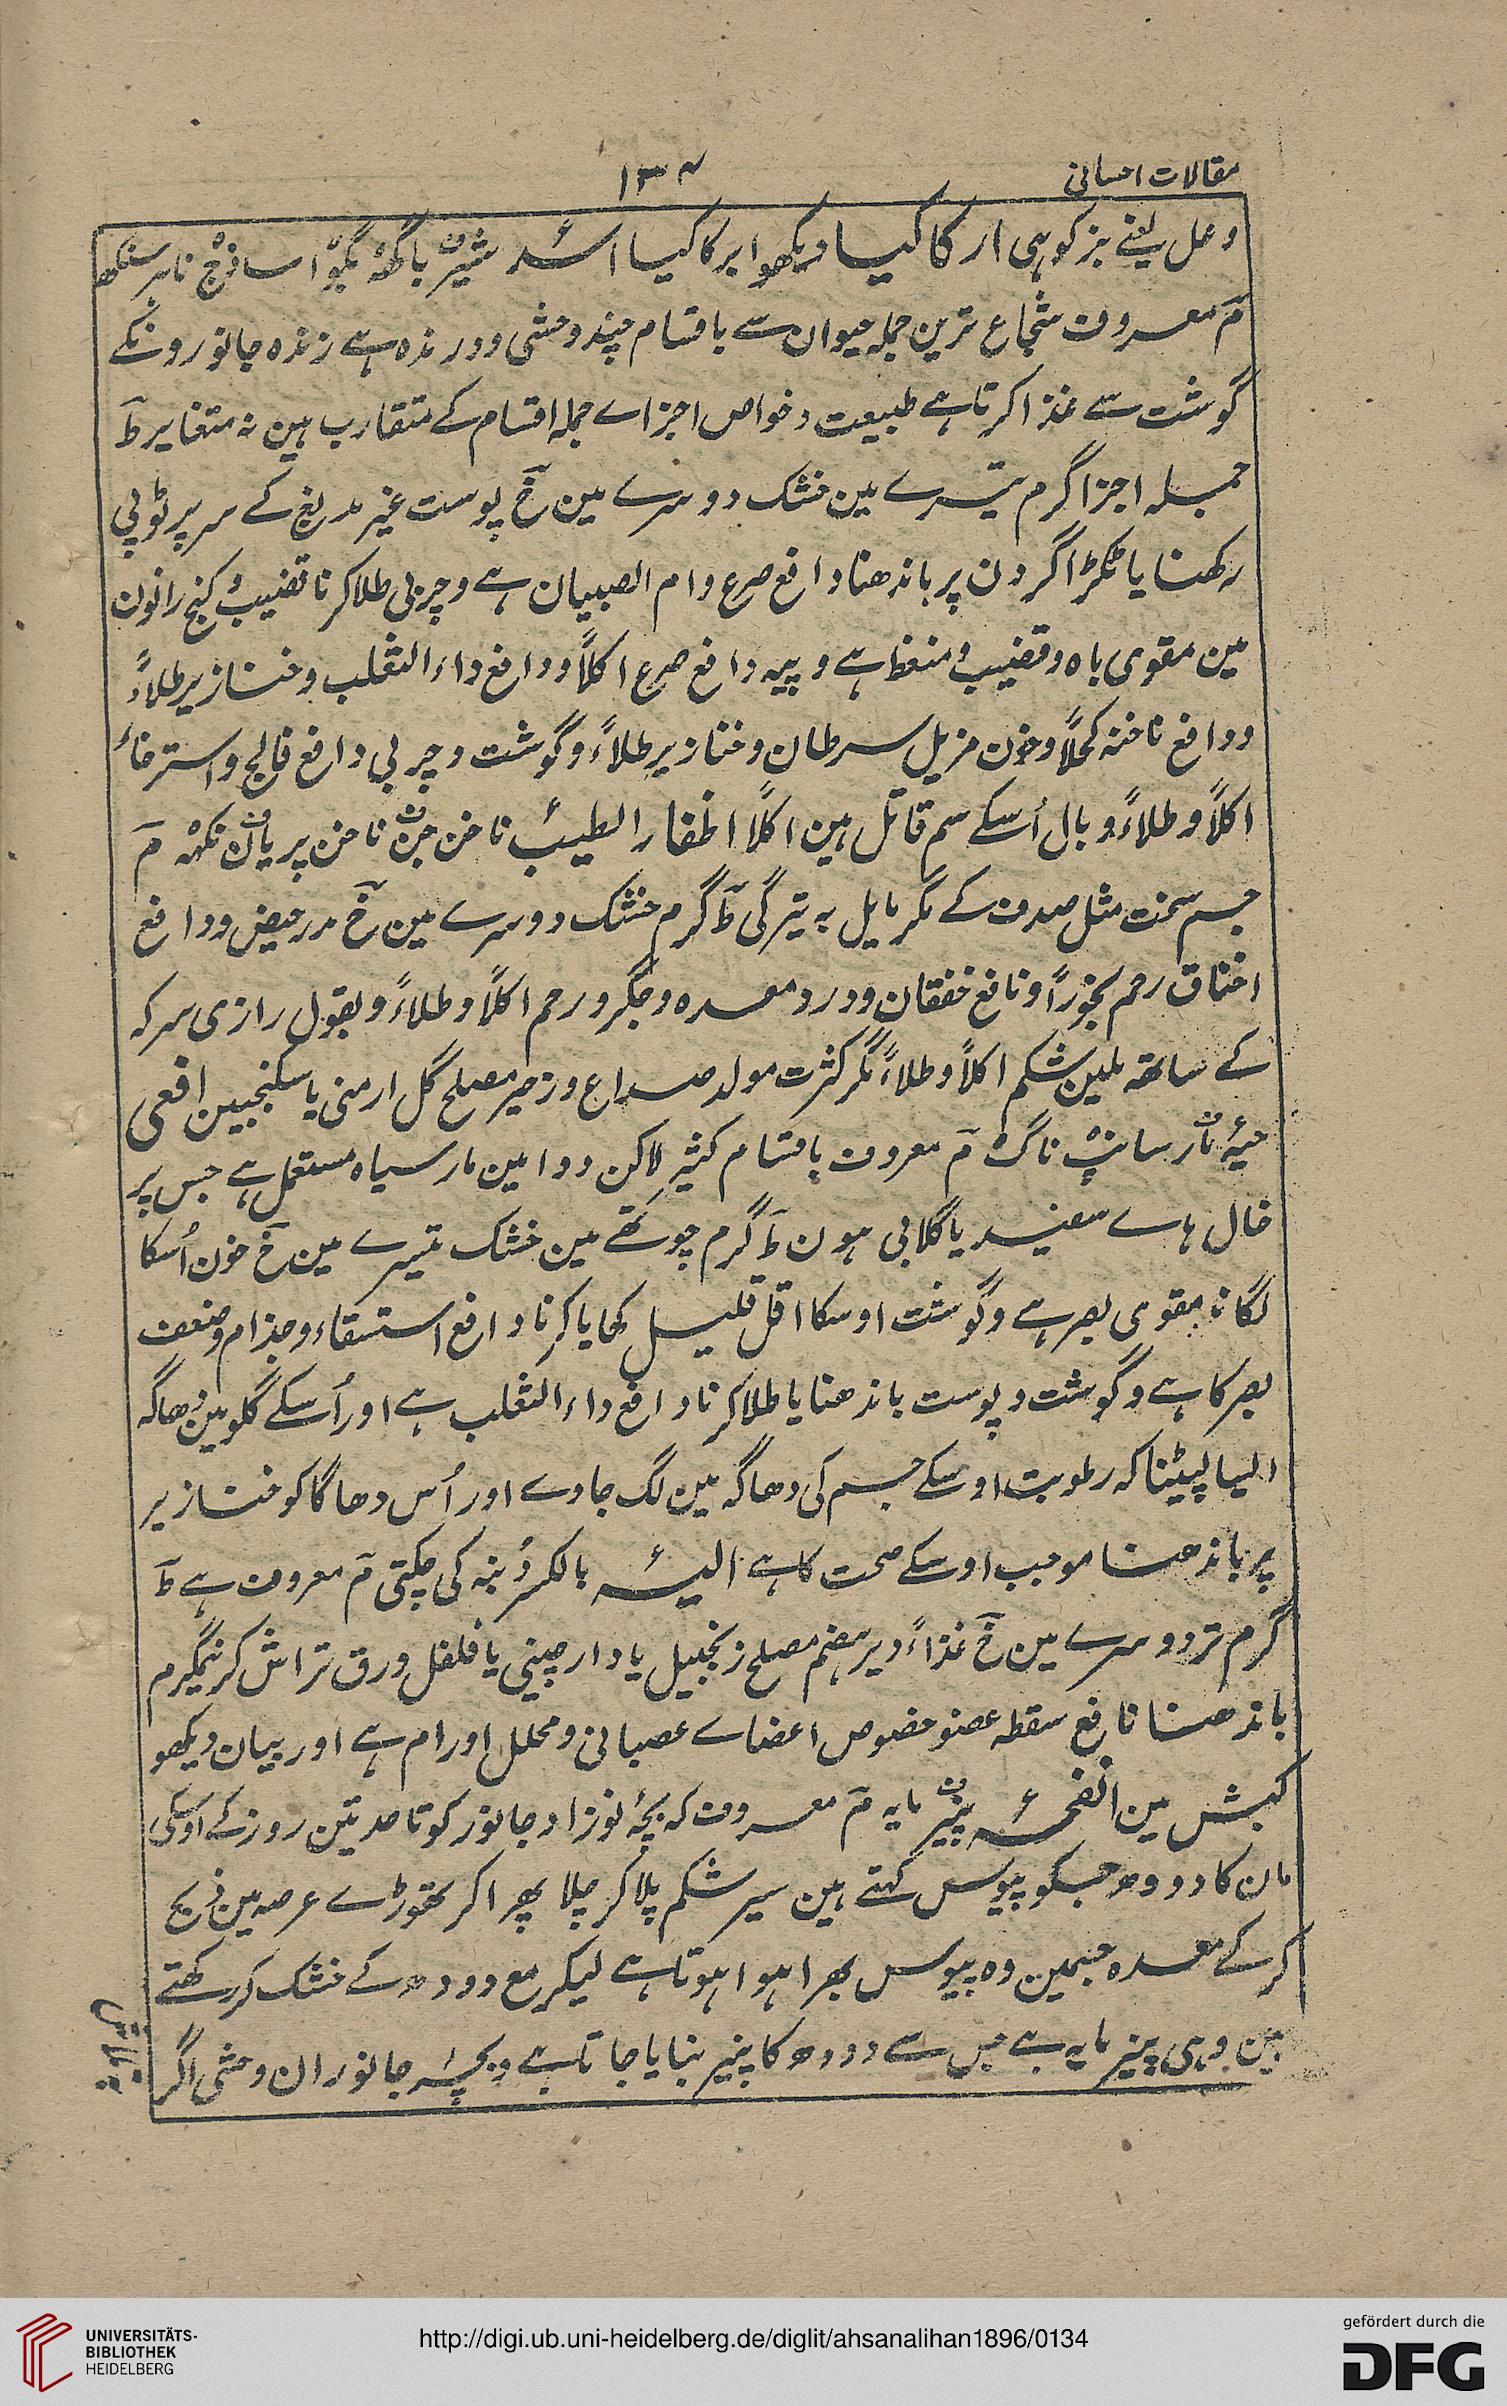 مقالات احسانی
۱۳۴
وعل یعنے بز کوہی ار کا کیا دیکھو ابر کا کیا اسد شیر باگھ بگو اساذج ناہر سنگھ
مَ معروف شجاع ترین جملہ حیوان سے باقسام چند وحشی و درندہ ہے زندہ جانورونکے
گوشت سے غذا کرتا ہے طبیعت و خواص اجزاے جملہ اقسام کے متقارب ہین نہ متغایر طَ
جملہ اجزا گرم تیسرے مین خشک دوسرے مین خَ پوست غیر مدبوغ کے سر پر ٹوپی
رکھنا یا ٹکڑا گردن پر باندھنا دافع صرع و ام الصبیان ہے و چربی طلا کرنا قضیب و کنج رانون
مین مقوی باہ و قضیب و منعظ ہے و پیہ دافع صرع اکلاً و دافع داء الثعلب و خنازیر طلاءً
و دافع ناخنہ کحلاً و خون مزیل سرطان و خنازیر طلاءً و گوشت و چربی دافع فالج و استرخاء
اکلاً و طلاءً و بال اُسکے سم قاتل ہین اکلاً اظفار الطیب ناخن جن ناخن پریان نکہہ مَ
جسم سخت مثل صدف کے مگر مایل بہ تیرگی طَ گرم خشک دوسرے مین خَ مدر حیض و دافع
اختناق رحم بخوراً و نافع خفقان و درد معدہ و جگر و رحم اکلاً و طلاءً و بقول رازی سرکہ
کے ساتھہ ملین شکم اکلاً و طلاءً مگر کثرت مولد صداع و زحیر مصلح گل ارمنی یا سکنجبین افعی
حیہ مار سانپ ناگ مَ معروف باقسام کثیر لاکن دوا مین مار سیاہ مستعمل ہے جس پر
خال ہاے سفید یا گلابی ہون طَ گرم چوتھے مین خشک تیسرے مین خَ خون اُسکا
لگانا مقوی بصر ہے و گوشت اوسکا اقل قلیل کھایا کرنا دافع استسقاء و جذام و ضعف
بصر کا ہے و گوشت و پوست باندھنا یا طلا کرنا دافع داء الثعلب ہے اور اُسکے گلو مین دھاگہ
ایسا لپیٹنا کہ رطوبت اوسکے جسم کی دھاگہ مین لگ جاوے اور اُس دھاگا کو خنازیر
پر باندھنا موجب اوسکے صحت کا ہے الیہ بالکسر دُنبہ کی چکتی مَ معروف ہے طَ
گرم تر دوسرے مین خَ غذاءً دیر ہضم مصلح زنجبیل یا دارچینی یا فلفل ورق تراش کر نیمگرم
باندھنا نافع سقطہ عضو خصوص اعضاے عصبانی و محلل اورام ہے اور بیان دیکھو
کبش مین انفحہ پنیر مایہ مَ معروف کہ بچۂ نوزاد جانور کو تا حد تین روز کے اوسکی
مان کا دودھ جسکو پیوس کہتے ہین سیر شکم پلا کر چلا پھرا کر تھوڑے عرصہ مین ذبح
کر کے معدہ جسمین وہ پیوس بھرا ہوا ہوتا ہے لیکر مع دودھ کے خشک کر رکھتے
ہین وہی پنیر مایہ ہے جس سے دودھ کا پنیر بنایا جاتا ہے و بچہ جانوران وحشی اگر
UNIVERSITÄTS-
BIBLIOTHEK
HEIDELBERG
http://digi.ub.uni-heidelberg.de/diglit/ahsanalihan1896/0134
gefördert durch die
DFG